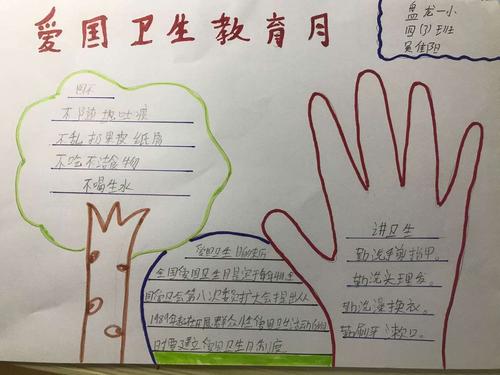 爱国卫生教育月
盘龙一小
四(3)班
四不
不随地吐痰
不乱扔果皮纸屑
不吃不洁食物
不喝生水
讲卫生
勤洗手剪指甲。
勤洗头理发。
勤洗澡换衣。
勤刷牙漱口。
爱国卫生月的来历
全国爱国卫生月是
第八次委员扩大会提出从
1989年起在开展群众性爱国卫生活动的
同时要建立爱国卫生月制度